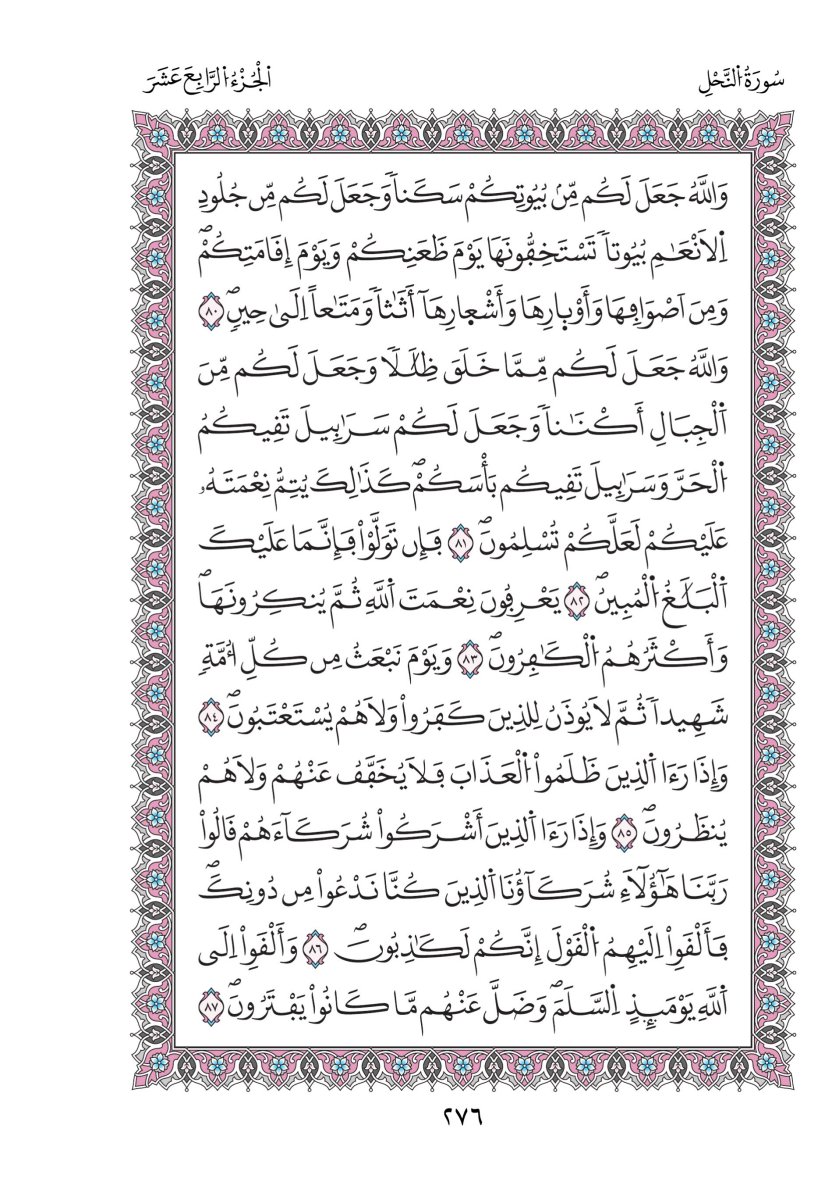 سُورَةُ اُ۬لنَّحْلِ
اَ۬لْجُزْءُ اُ۬لرَّابِعَ عَشَرَ
وَاللَّهُ جَعَلَ لَكُم مِّنۢ بُيُوتِكُمْ سَكَناٗ وَجَعَلَ لَكُم مِّن جُلُودِ
اِ۬لَانْعَٰمِ بُيُوتاٗ تَسْتَخِفُّونَهَا يَوْمَ ظَعَنِكُمْ وَيَوْمَ إِقَامَتِكُمْۖ
وَمِنَ اَصْوَافِهَا وَأَوْبارِهَا وَأَشْعارِهَآ أَثَٰثاٗ وَمَتَٰعاً اِلَىٰ حِينٖۖ ٨٠
وَاللَّهُ جَعَلَ لَكُم مِّمَّا خَلَقَ ظِلَٰلاٗ وَجَعَلَ لَكُم مِّنَ
اَ۬لْجِبَالِ أَكْنَٰناٗ وَجَعَلَ لَكُمْ سَرَٰبِيلَ تَقِيكُمُ
اُ۬لْحَرَّ وَسَرَٰبِيلَ تَقِيكُم بَأْسَكُمْۖ كَذَٰلِكَ يُتِمُّ نِعْمَتَهُۥ
عَلَيْكُمْ لَعَلَّكُمْ تُسْلِمُونَۖ ٨١ فَإِن تَوَلَّوْاْ فَإِنَّمَا عَلَيْكَ
اَ۬لْبَلَٰغُ اُ۬لْمُبِينُۖ ٨٢ يَعْرِفُونَ نِعْمَتَ اَ۬للَّهِ ثُمَّ يُنكِرُونَهَاۖ
وَأَكْثَرُهُمُ اُ۬لْكَٰفِرُونَۖ ٨٣ وَيَوْمَ نَبْعَثُ مِن كُلِّ أُمَّةٖ
شَهِيداٗ ثُمَّ لَا يُوذَنُ لِلذِينَ كَفَرُواْ وَلَا هُمْ يُسْتَعْتَبُونَۖ ٨٤
وَإِذَا رَءَا اَ۬لذِينَ ظَلَمُواْ اُ۬لْعَذَابَ فَلَا يُخَفَّفُ عَنْهُمْ وَلَا هُمْ
يُنظَرُونَۖ ٨٥ وَإِذَا رَءَا اَ۬لذِينَ أَشْرَكُواْ شُرَكَآءَهُمْ قَالُواْ
رَبَّنَا هَٰٓؤُلَآءِ شُرَكَآؤُنَا اَ۬لذِينَ كُنَّا نَدْعُواْ مِن دُونِكَۖ
فَأَلْقَوِاْ اِلَيْهِمُ اُ۬لْقَوْلَ إِنَّكُمْ لَكَٰذِبُونَۖ ٨٦ وَأَلْقَوِاْ اِلَى
اَ۬للَّهِ يَوْمَئِذٍ اِ۬لسَّلَمَۖ وَضَلَّ عَنْهُم مَّا كَانُواْ يَفْتَرُونَۖ ٨٧
٢٧٦